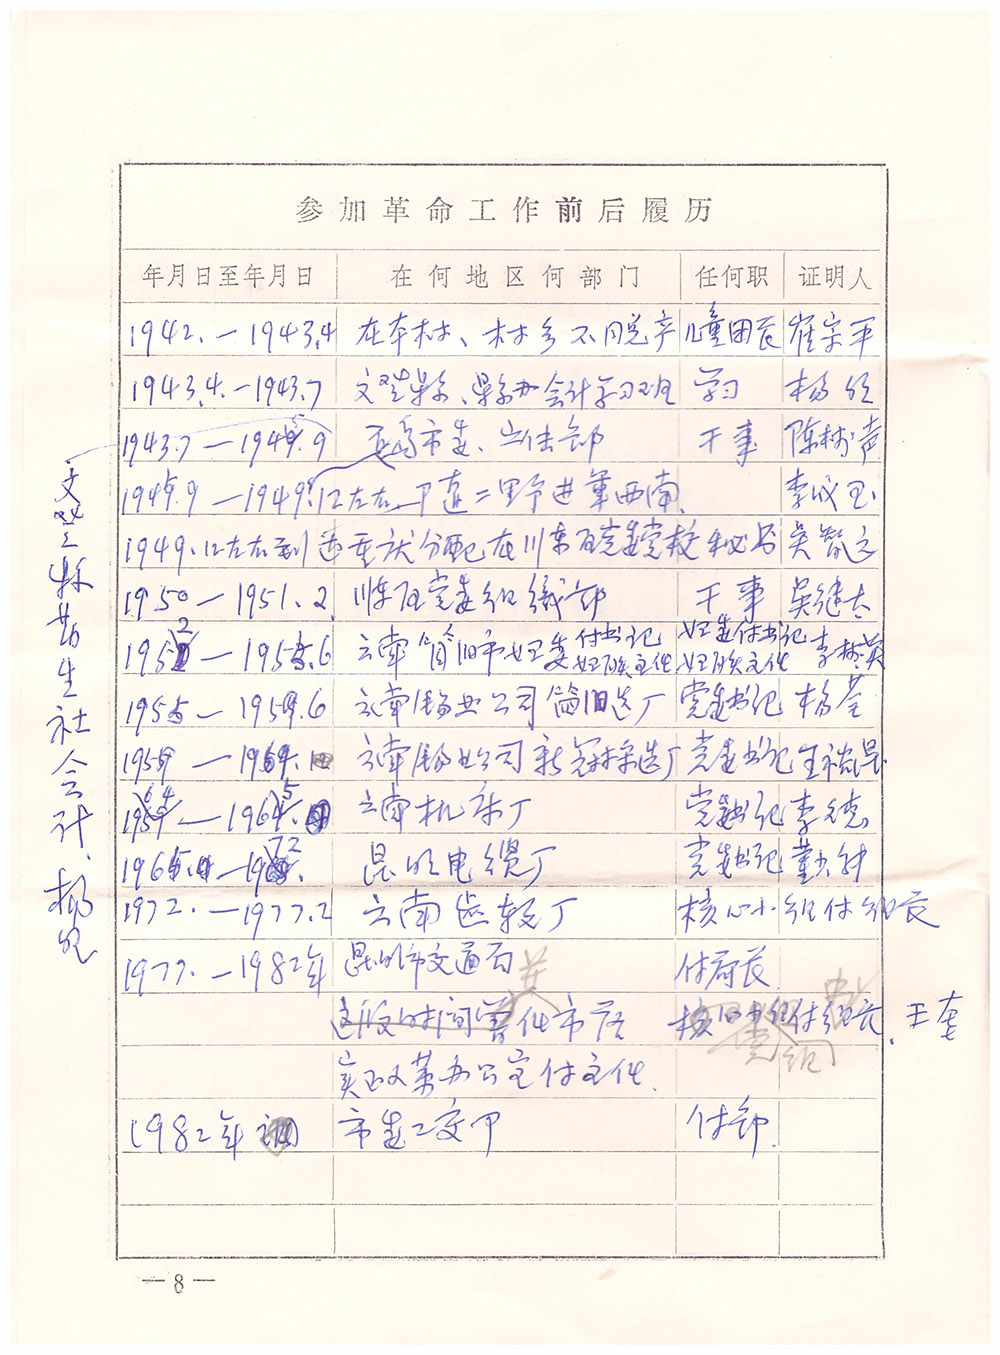 参加革命工作前后履历
年月日至年月日 在何地区何部门 任何职 证明人
1942.—1943.4 在本村、村乡不脱产 儿童团长 崔宗平
1943.4.—1943.7 文登县、县办会计学习班 学习 杨
1943.7—1945.9 市委、宣传部 干事 陈树声
1945.9—1949.12左右 二野进军西南 李成玉
1949.12左右到 重庆分配在川东区党委党校 秘书 吴智
1950—1951.2 川东区党委组织部 干事 吴继
1952—1955.6 云南箇旧市妇委付书记 妇委付书记 李树英
妇联主任 妇联主任
1955—1959.6 云南锡业公司箇旧选厂 党委书记 杨
1959—1964. 云南锡业公司新冠林采选厂 党委书记 王
1964—1965. 云南机床厂 党委书记 李德
1965.—1972. 昆明电缆厂 党委书记 董
1972.—1977.2 云南齿轮厂 核心小组付组长
1977.—1982年 昆明市交通局 付局长
这段时间兼任市落 核心小组付组长 王奎
实政策办公室付主任
1982年 市委工交 付部
文登县 生社会计、杨
—8—